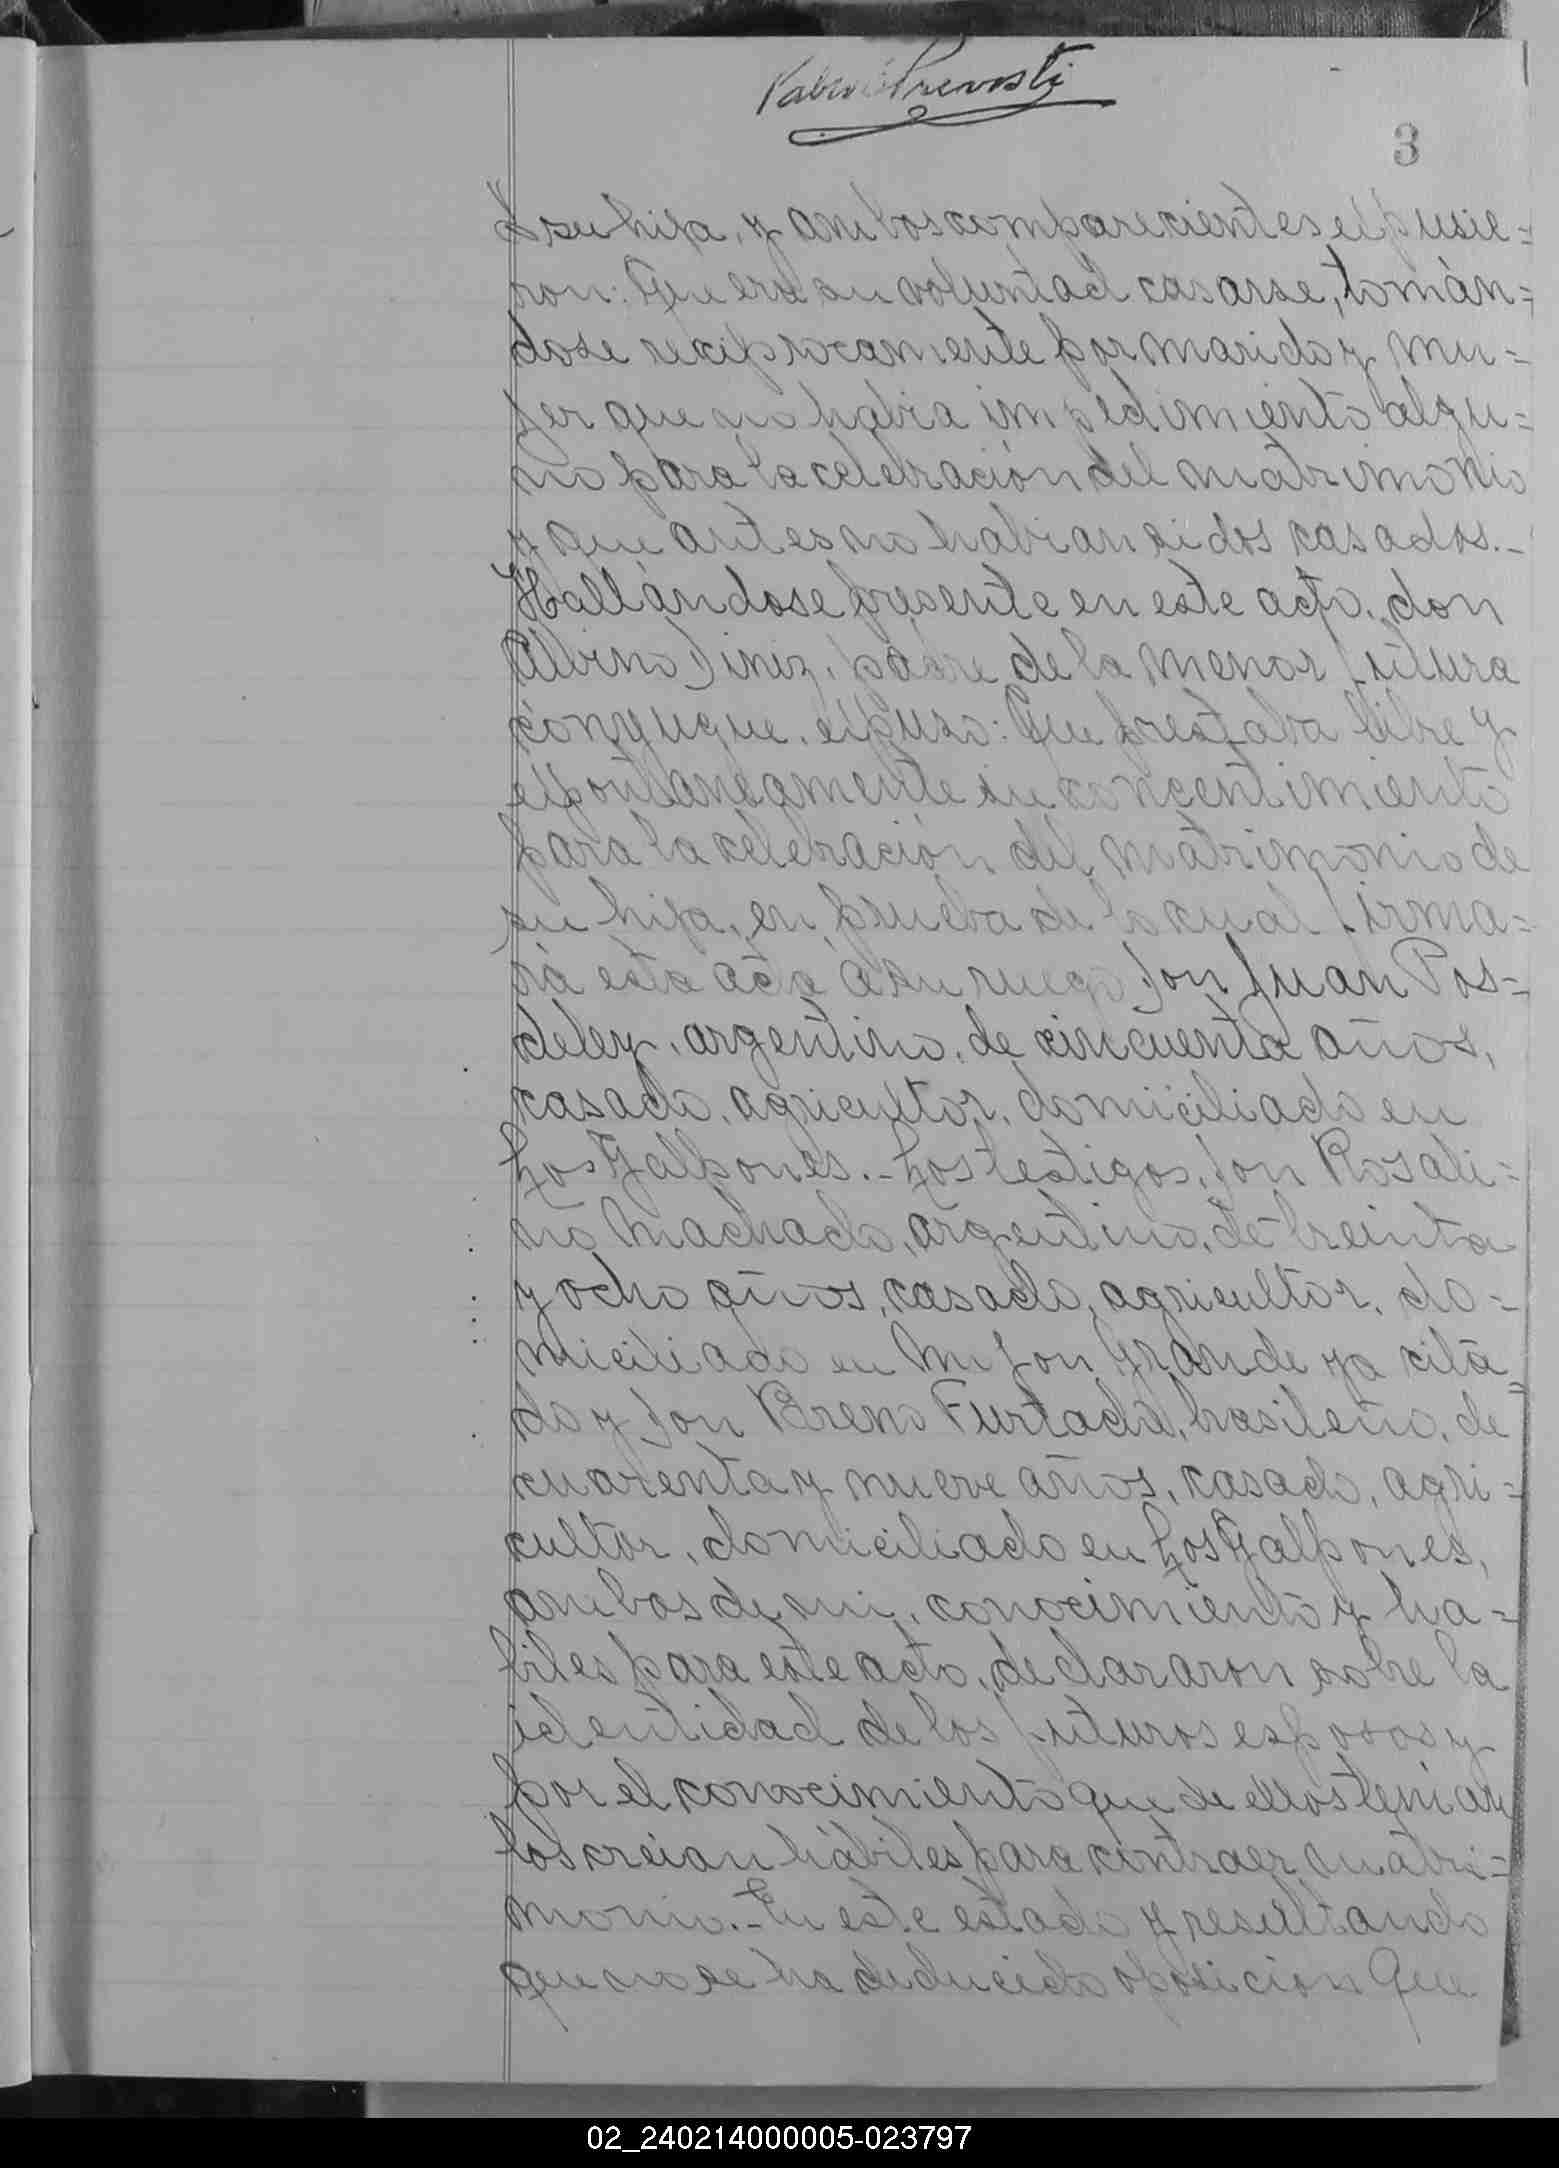 Prevosti
3
su hija, y ambos comparecientes expusie=
ron: Que era su voluntad casarse, tomán=
dose reciprocamente por marido y mu=
jer que no habia impedimiento algu=
no para la celebración del matrimonio
y que antes no habian sidos casados.-
Hallándose presente en este acto, don
Albino padre de la menor futura
cónyugue, expuso: Que prestaba libre y
expontaneamente su concentimiento
para la celebración del matrimonio de
su hija, en prueba de lo cual firma=
rá esta acta á su ruego Don Juan Pos=
deley, argentino, de cincuenta años,
casado, agricultor, domiciliado en
Los Galpones.- Los testigos, Don Rosali=
no Machado, argentino, de treinta
y ocho años, casado, agricultor, do=
miciliado en Mojon Grande ya cita=
do y Don Breno Furtado, brasileño, de
cuarenta y nueve años, casado, agri=
cultor, domiciliado en Los Galpones,
ambos de mi conocimiento y ha=
biles para este acto, declararon sobre la
identidad de los futuros esposos y
por el conocimiento que de ellos tenian
los creian hábiles para contraer matri=
monio.- En este estado y resultando
que no se ha deducido oposicion Que
02_240214000005-023797